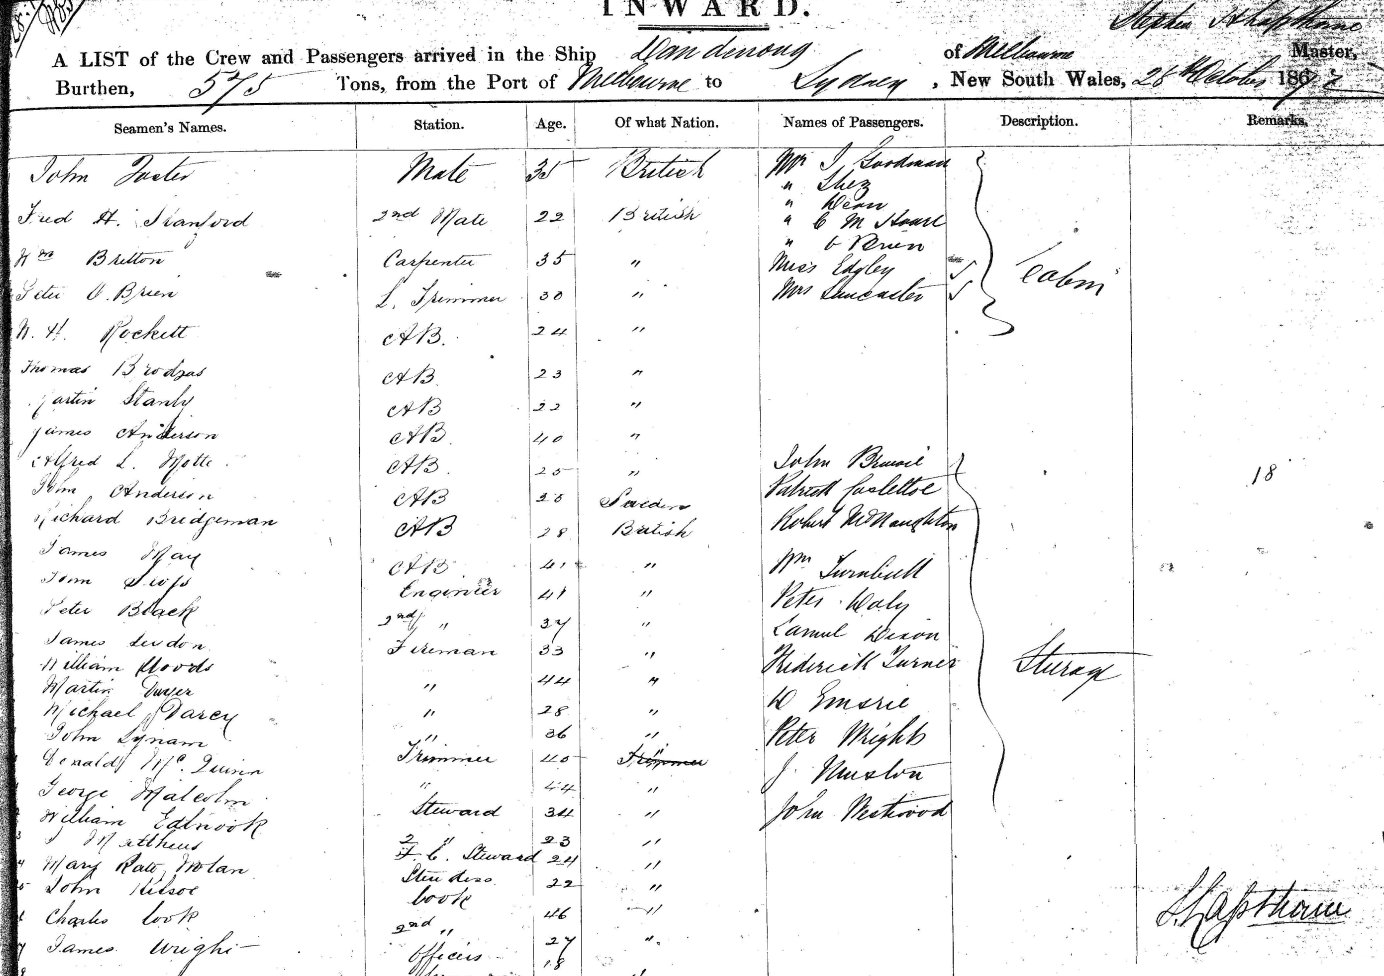 INWARD.
A LIST of the Crew and Passengers arrived in the Ship Dandenong of Melbourne Master,
Burthen, 575 Tons, from the Port of Melbourne to Sydney, New South Wales, 28th October 187
Seamen's Names. Station. Age. Of what Nation. Names of Passengers. Description. Remarks.
John Foster Mate 35 British Mr J Goodman
" 
" Dean
Fred H. Stanford 2nd Mate 22 British " C M Hoare
" O Brien
Wm Britton Carpenter 35 " Miss Edgley Cabin
Peter O.Brien L. Trimmer 30 " Mrs Lancaster
W. H. Rockett AB. 24 "
Thomas AB. 23 "
Martin Stanly AB 22 "
James Anderson AB. 40 "
Alfred L. Motte AB. 25 " John
John Anderson AB 20 Sweden Patrick 18
Richard Bridgeman AB 28 British Robert McNaughton
James May AB 41 " Wm Turnbull
John Engineer 41 " Peter Daly
Peter Black 2nd " 37 " Samuel Dixon
James Fireman 33 " Frederick Turner Steerage
William Woods " 44 " D Emsrie
Martin Dwyer " 28 "
Michael Darcy " 36 " Peter Wright
John Lynam Trimmer 40 "
Donald McQuinn " 44 " J
George Malcolm Steward 34 " John Westwood
William 2 " 23 "
J Matthews F. C. Steward 24 "
Mary Kate Nolan Stewdess 22 "
John Cook 46 "
Charles Cook 2nd " 27 "
James Wright Officers 18 "